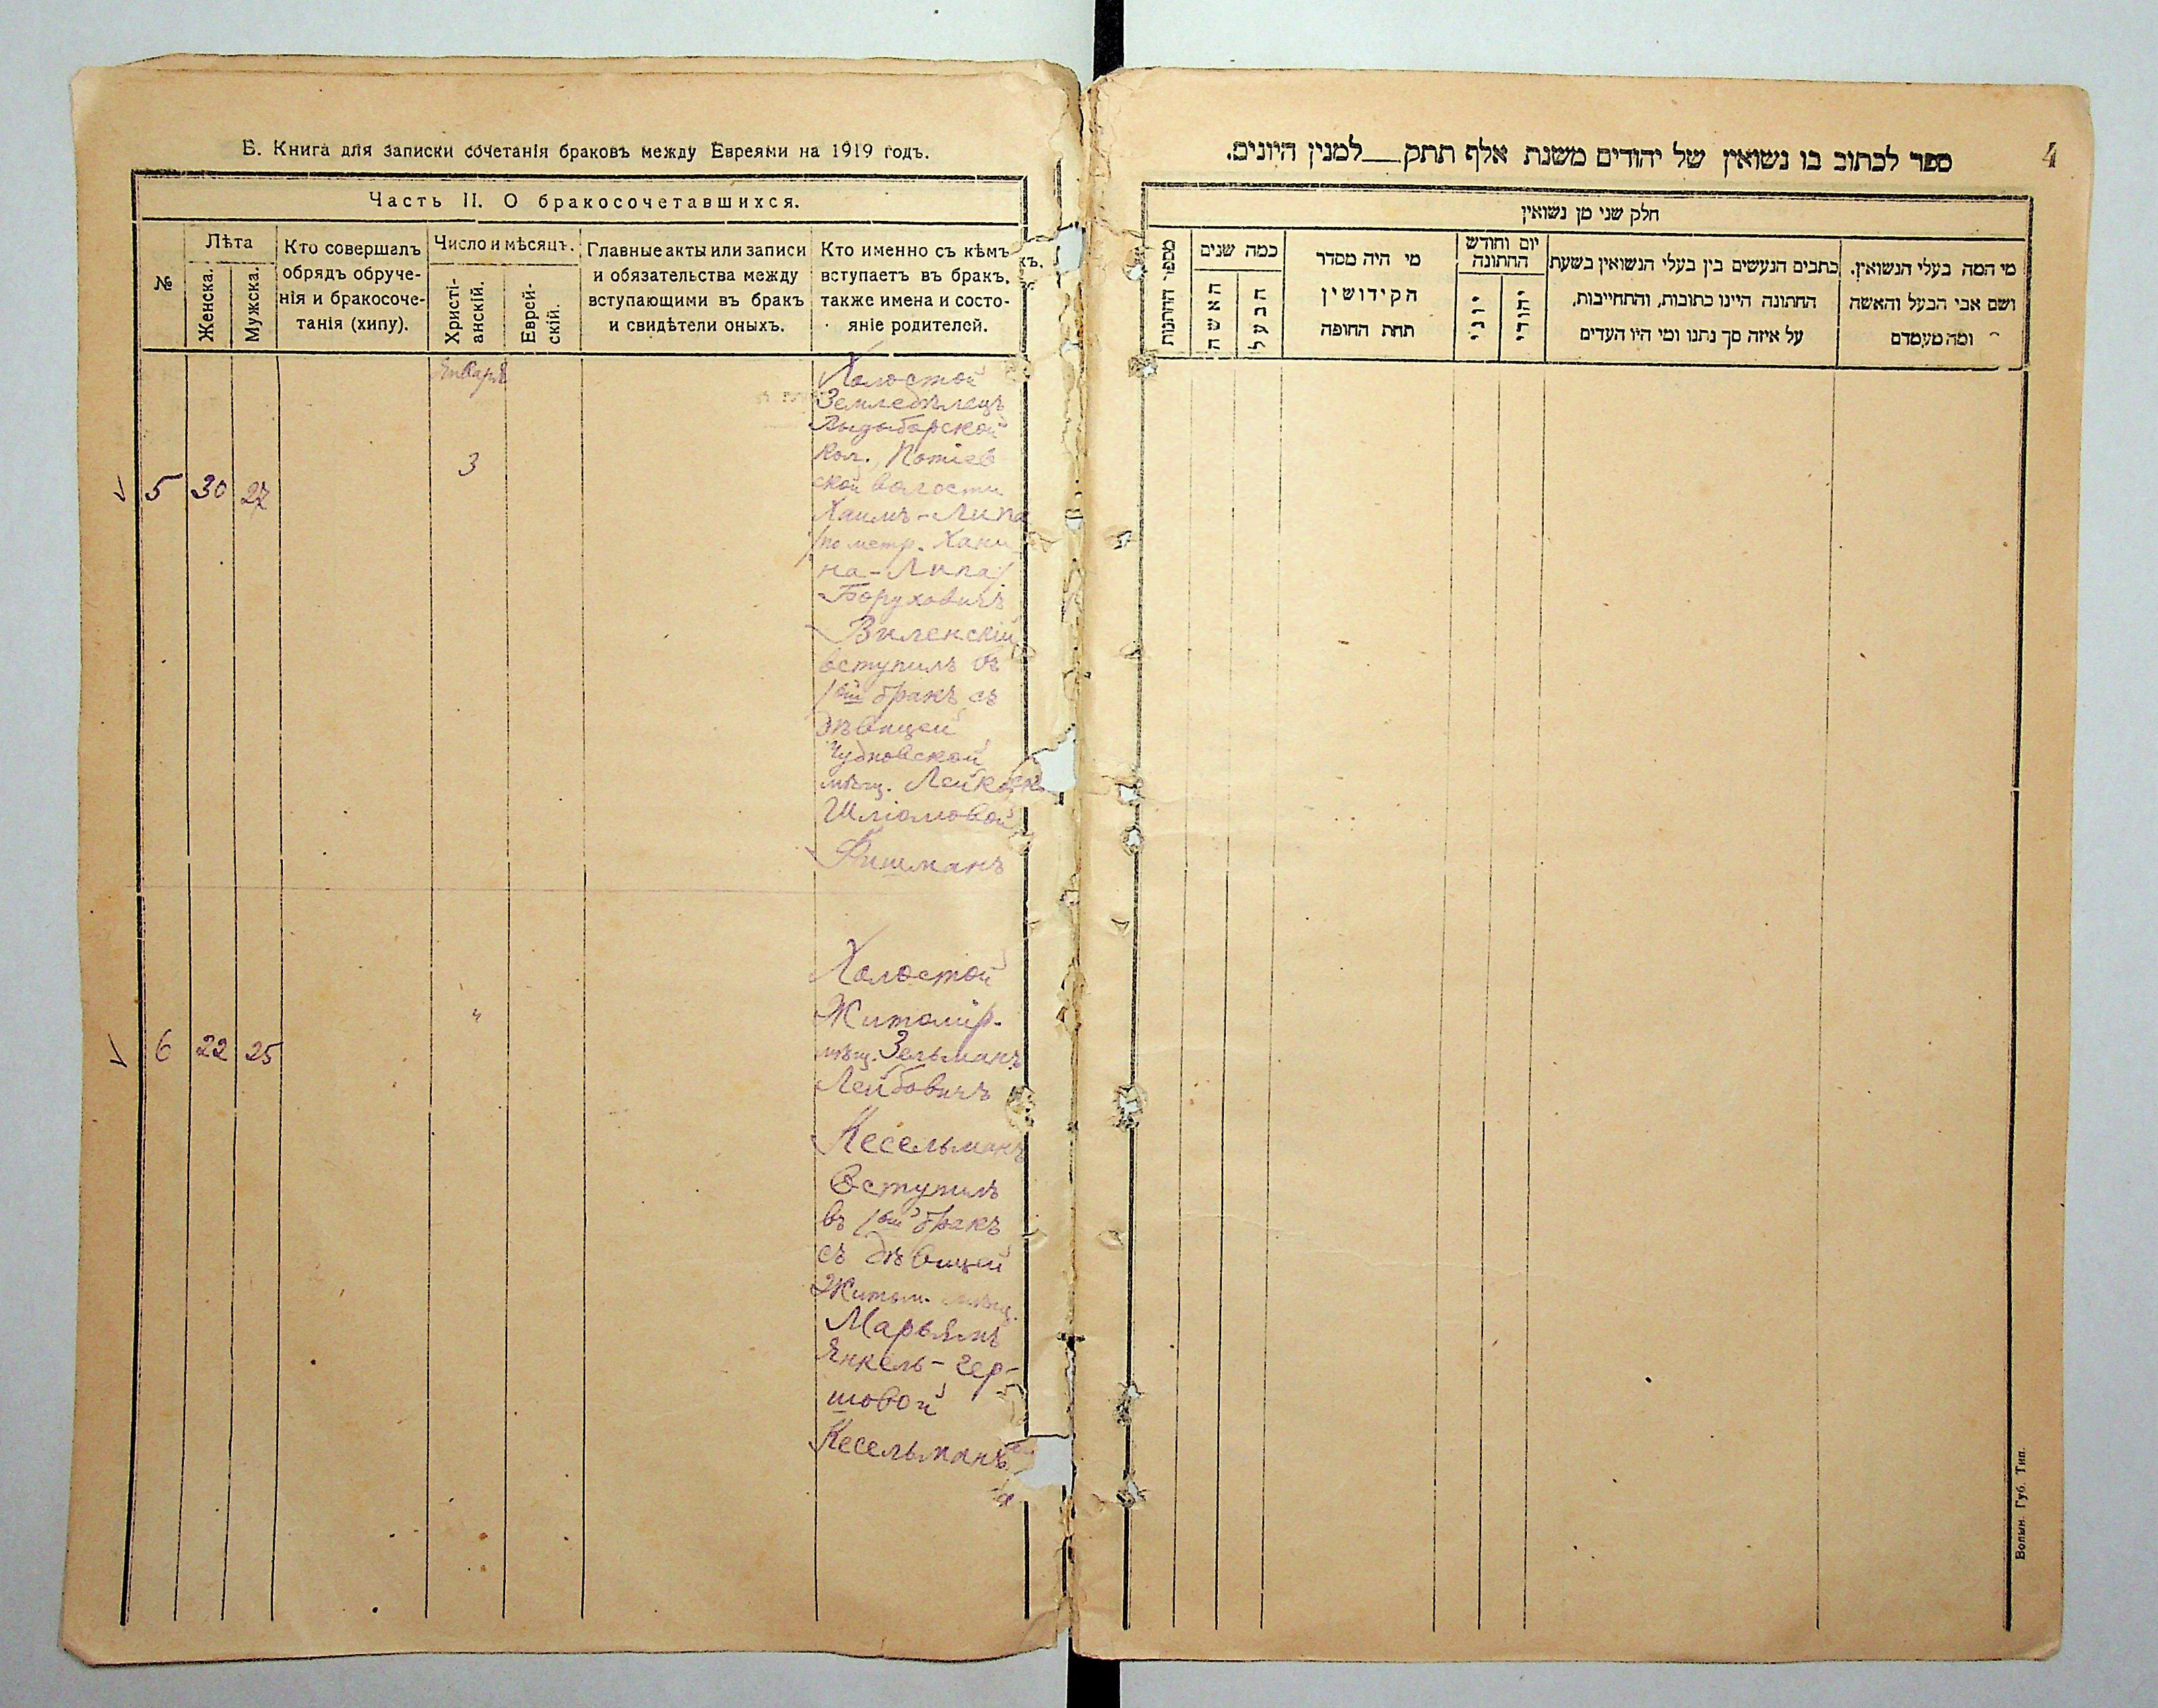 Б. Книга для записки сочетанія браковъ между Евреями на 1919 годъ.
Часть II. О бракосочетавшихся.
№
Лѣта
Женска.
Мужска.
Кто совершалъ
обрядъ обруче-
нія и бракосоче-
танія (хипу).
Число и мѣсяцъ.
Христі-
анскій.
Еврей-
скій.
Главные акты или записи
и обязательства между
вступающими въ бракъ
и свидѣтели оныхъ.
Кто именно съ кѣмъ
вступаетъ въ бракъ,
также имена и состо-
яніе родителей.
Января
5 30 27
3
Холостой
Земледѣлецъ
кол. Потіев
ской волости
Хаимъ-Липа
/по метр. Хани
на-Липа/
Боруховичъ
Виленскій
вступилъ въ
1ый бракъ съ
дѣвицей
Чудновской
мѣщ. Лейкой
Шліомовой
Фишманъ
6 22 25
"
Холостой
Житомір.
мѣщ. Зельманъ
Лейбовичъ
Кесельманъ
Вступилъ
въ 1ый бракъ
съ дѣвицей
Житом. мѣщ.
Марьямъ
Янкель-Гер-
шовой
Кесельманъ
4
ספר לכתוב בו נשואין של יהודים משנת אלף תתק__למנין היונים.
חלק שני מן נשואין
מספר החתנות
כמה שנים
האשה
הבעל
מי היה מסדר
הקידושין
תחת החופה
יום וחודש
החתונה
יוני
יהודי
כתבים הנעשים בין בעלי הנשואין בשעת
החתונה היינו כתובות, והתחייבות,
על איזה סך נתנו ומי היו העדים
מי המה בעלי הנשואין.
ושם אבי הבעל והאשה
ומה מעמדם
Волын. Губ. Тип.